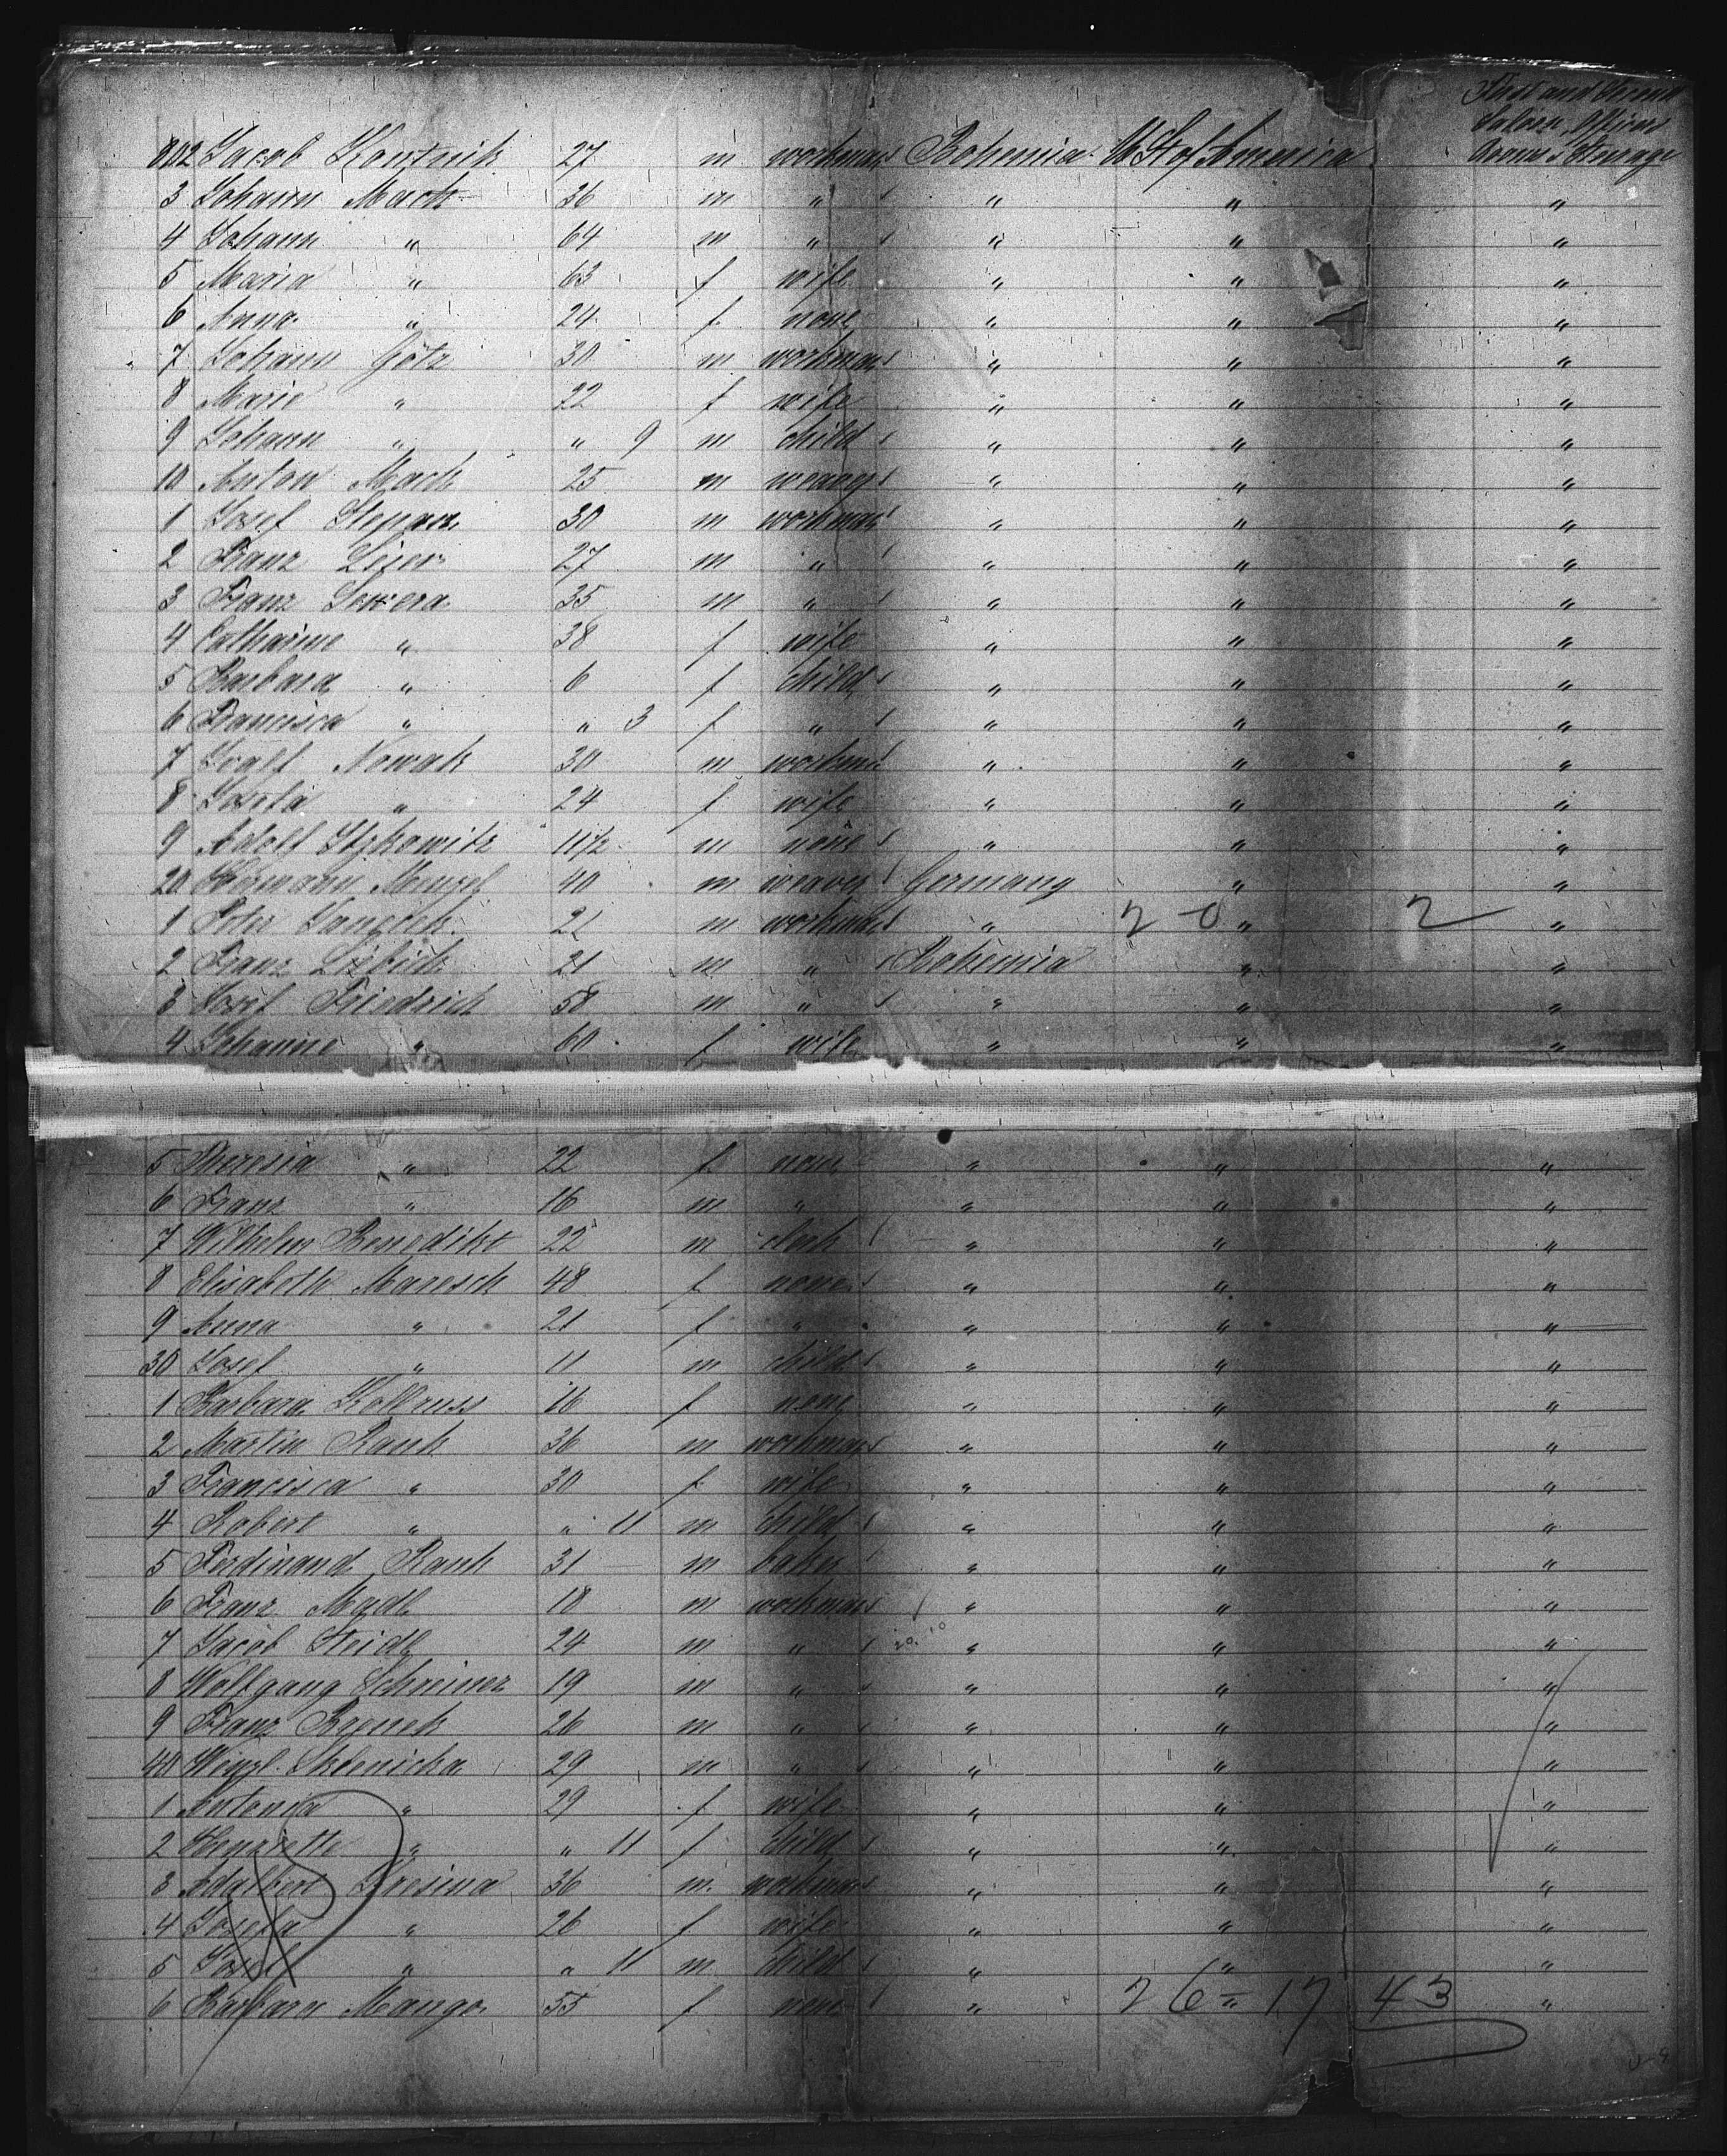 First and Second
Saloon, Officers
Rooms & Steerage
802 Jacob Kostnik 27 m workman Bohemia U St of America
3 Johann Mach 36 m " " " "
4 Johann " 64 m " " " "
5 Maria " 63 f wife " " "
6 Anna " 24 f none " " "
7 Johann Götz 30 m workman " " "
8 Marie " 22 f wife " " "
9 Johann " " 9 m child " " "
10 Anton Mach 25 m weaver " " "
1 Josef Stepan 30 m workman " " "
2 Franz 27 m " " " "
3 Franz 35 m " " " "
4 Catharine " 38 f wife " " "
5 Barbara " 6 f child " " "
6 Francisca " " 3 f " " " "
7 Nowak 30 m workman " " "
8 Josefa " 24 f wife " " "
9 Adolf Itzkowitz 11 1/2 m none " " "
20 Hermann Menzel 40 m weaver Germany " "
1 Peter 21 m workman " 2 0 " 2 "
2 Franz 21 m " Bohemia " "
3 Josef Friedrich 58 m " " " "
4 Johanne " 60 f wife " " "
5 Theresia " 22 f none " " "
6 Franz " 16 m " " " "
7 Wilhelm Benedikt 22 m clerk " " "
8 Elisabeth Maresch 48 f none " " "
9 Anna " 21 f " " " "
30 Josef " 11 m child " " "
1 Barbara Kollruss 16 f none " " "
2 Martin Rank 36 m workman " " "
3 Francisca " 30 f wife " " "
4 Robert " " 11 m child " " "
5 Ferdinand Rank 31 m baker " " "
6 Franz Madl 18 m workman " " "
7 Jacob Steidl 24 m " " " "
8 Wolfgang Schreiner 19 m " " " "
9 Franz 26 m " " " "
40 Wenzl Sklenicka 29 m " " " "
1 Antonia " 29 f wife " " "
2 Henriette " " 11 f child " " "
3 Adalbert Bresina 36 m workman " " "
4 Josefa " 26 f wife " " "
5 Josef " " 11 m child " " "
6 Barbara Mango 55 f none " 26 = 17 43 "